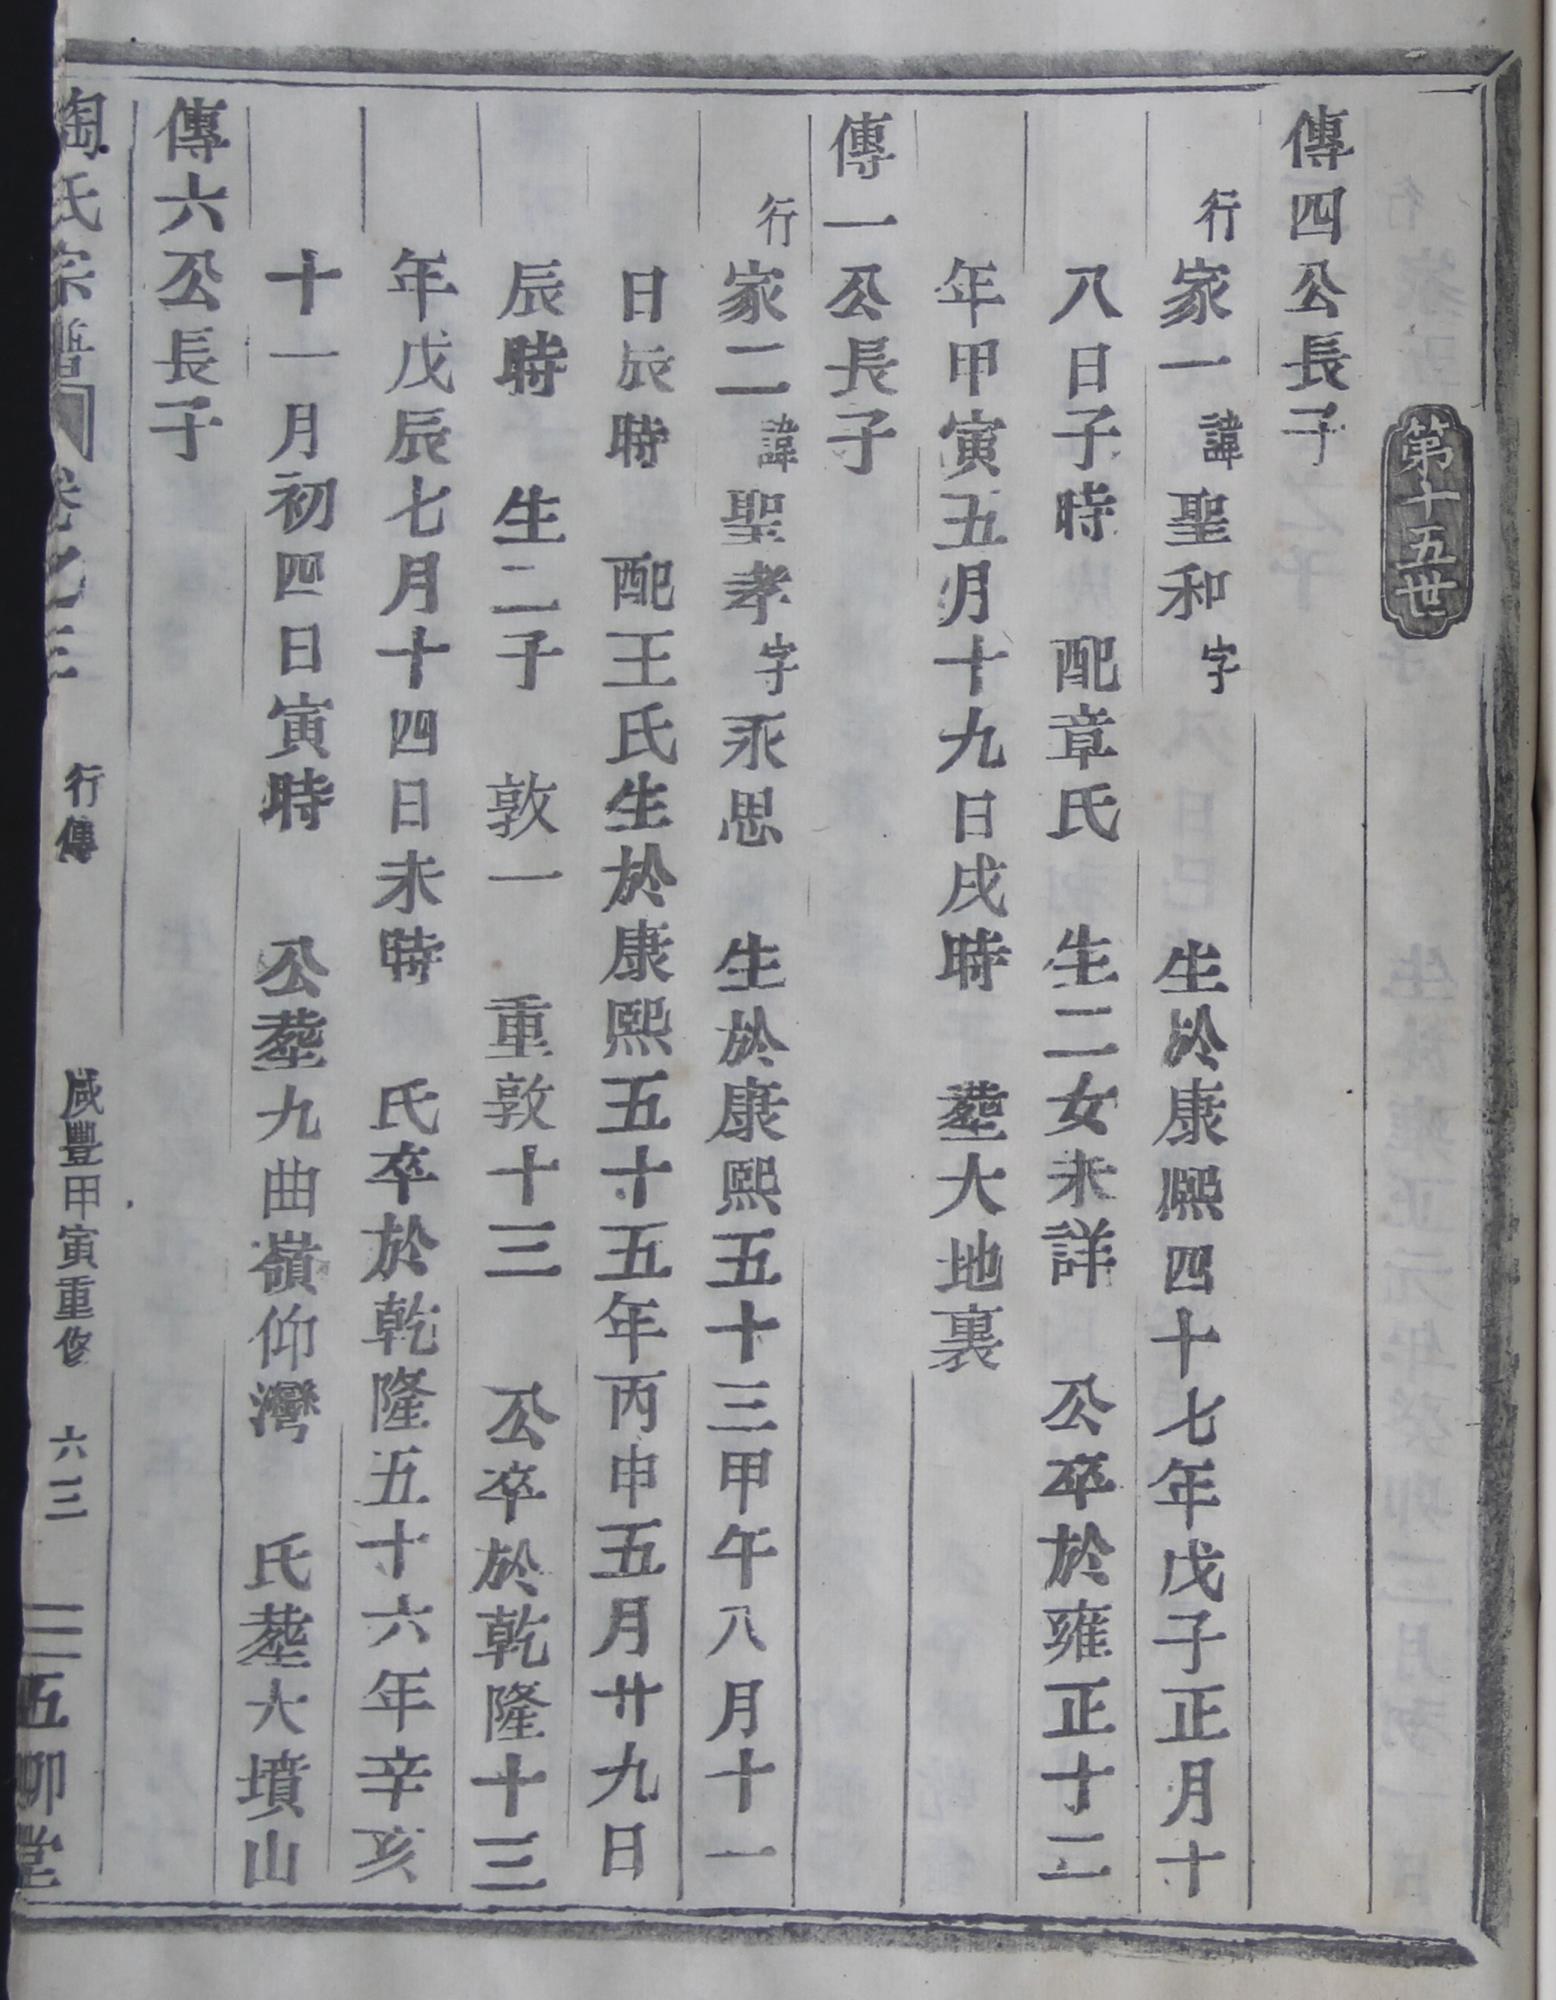 第十五世
傳四公長子
行家一諱聖和字 生於康熙四十七年戊子正月十
八日子時 配章氏 生二女未詳 公卒於雍正十二
年甲寅五月十九日戌時 塟大地裏
傳一公長子
行家二諱聖孝字永思 生於康熙五十三甲午八月十一
日辰時 配王氏生於康熙五十五年丙申五月廿九日
辰時 生二子 敦一 重敦十三 公卒於乾隆十三
年戊辰七月十四日未時 氏卒於乾隆五十六年辛亥
十一月初四日寅時 公塟九曲嶺仰灣 氏塟大墳山
傳六公長子
陶氏宗譜 卷之三 行傳 咸豐甲寅重修 六三 五柳堂